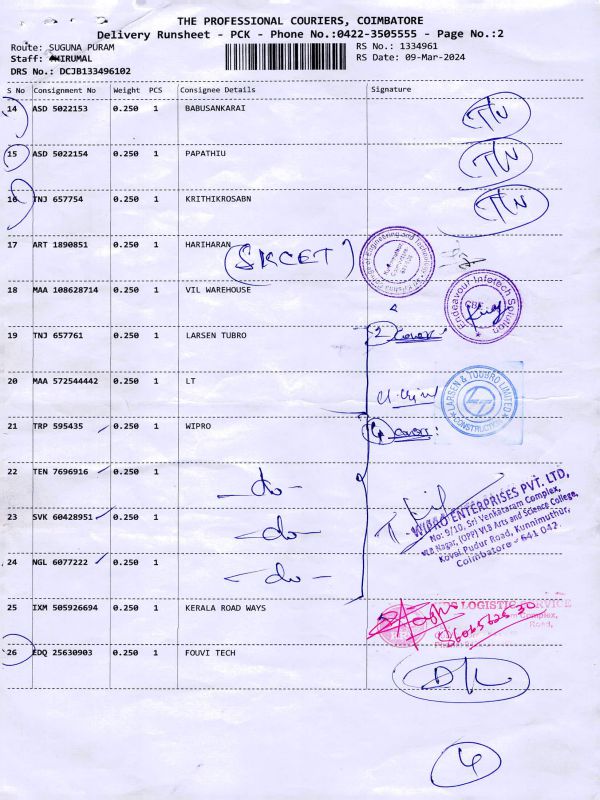 THE PROFESSIONAL COURIERS, COIMBATORE
Delivery Runsheet - PCK - Phone No.:0422-3505555 - Page No.:2
Route: SUGUNA PURAM RS No.: 1334961
Staff: RS Date: 09-Mar-2024
DRS No.: DCJB133496102
S No Consignment No Weight PCS Consignee Details Signature
14 ASD 5022153 0.250 1 BABUSANKARAI
15 ASD 5022154 0.250 1 PAPATHIU
16 TNJ 657754 0.250 1 KRITHIKROSABN
17 ART 1890851 0.250 1 HARIHARAN
(SKCET)
18 MAA 108628714 0.250 1 VIL WAREHOUSE
Endeavour Infotech Solution
CBE
19 TNJ 657761 0.250 1 LARSEN TUBRO
20 MAA 572544442 0.250 1 LT
LARSEN & TOUBRO LIMITED
CONSTRUCTION
21 TRP 595435 0.250 1 WIPRO
22 TEN 7696916 0.250 1
-do-
23 SVK 60428951 0.250 1
-do-
24 NGL 6077222 0.250 1
-do-
WIPRO ENTERPRISES PVT. LTD,
No: 9/10, Sri Venkataram Complex,
VLB Nagar, (OPP) VLB Arts and Science College,
Kovai Pudur Road, Kunnimuthur,
Coimbatore - 641 042.
25 IXM 505926694 0.250 1 KERALA ROAD WAYS
LOGISTIC SERVICE
Complex,
Road,
26 EDQ 25630903 0.250 1 FOUVI TECH
4